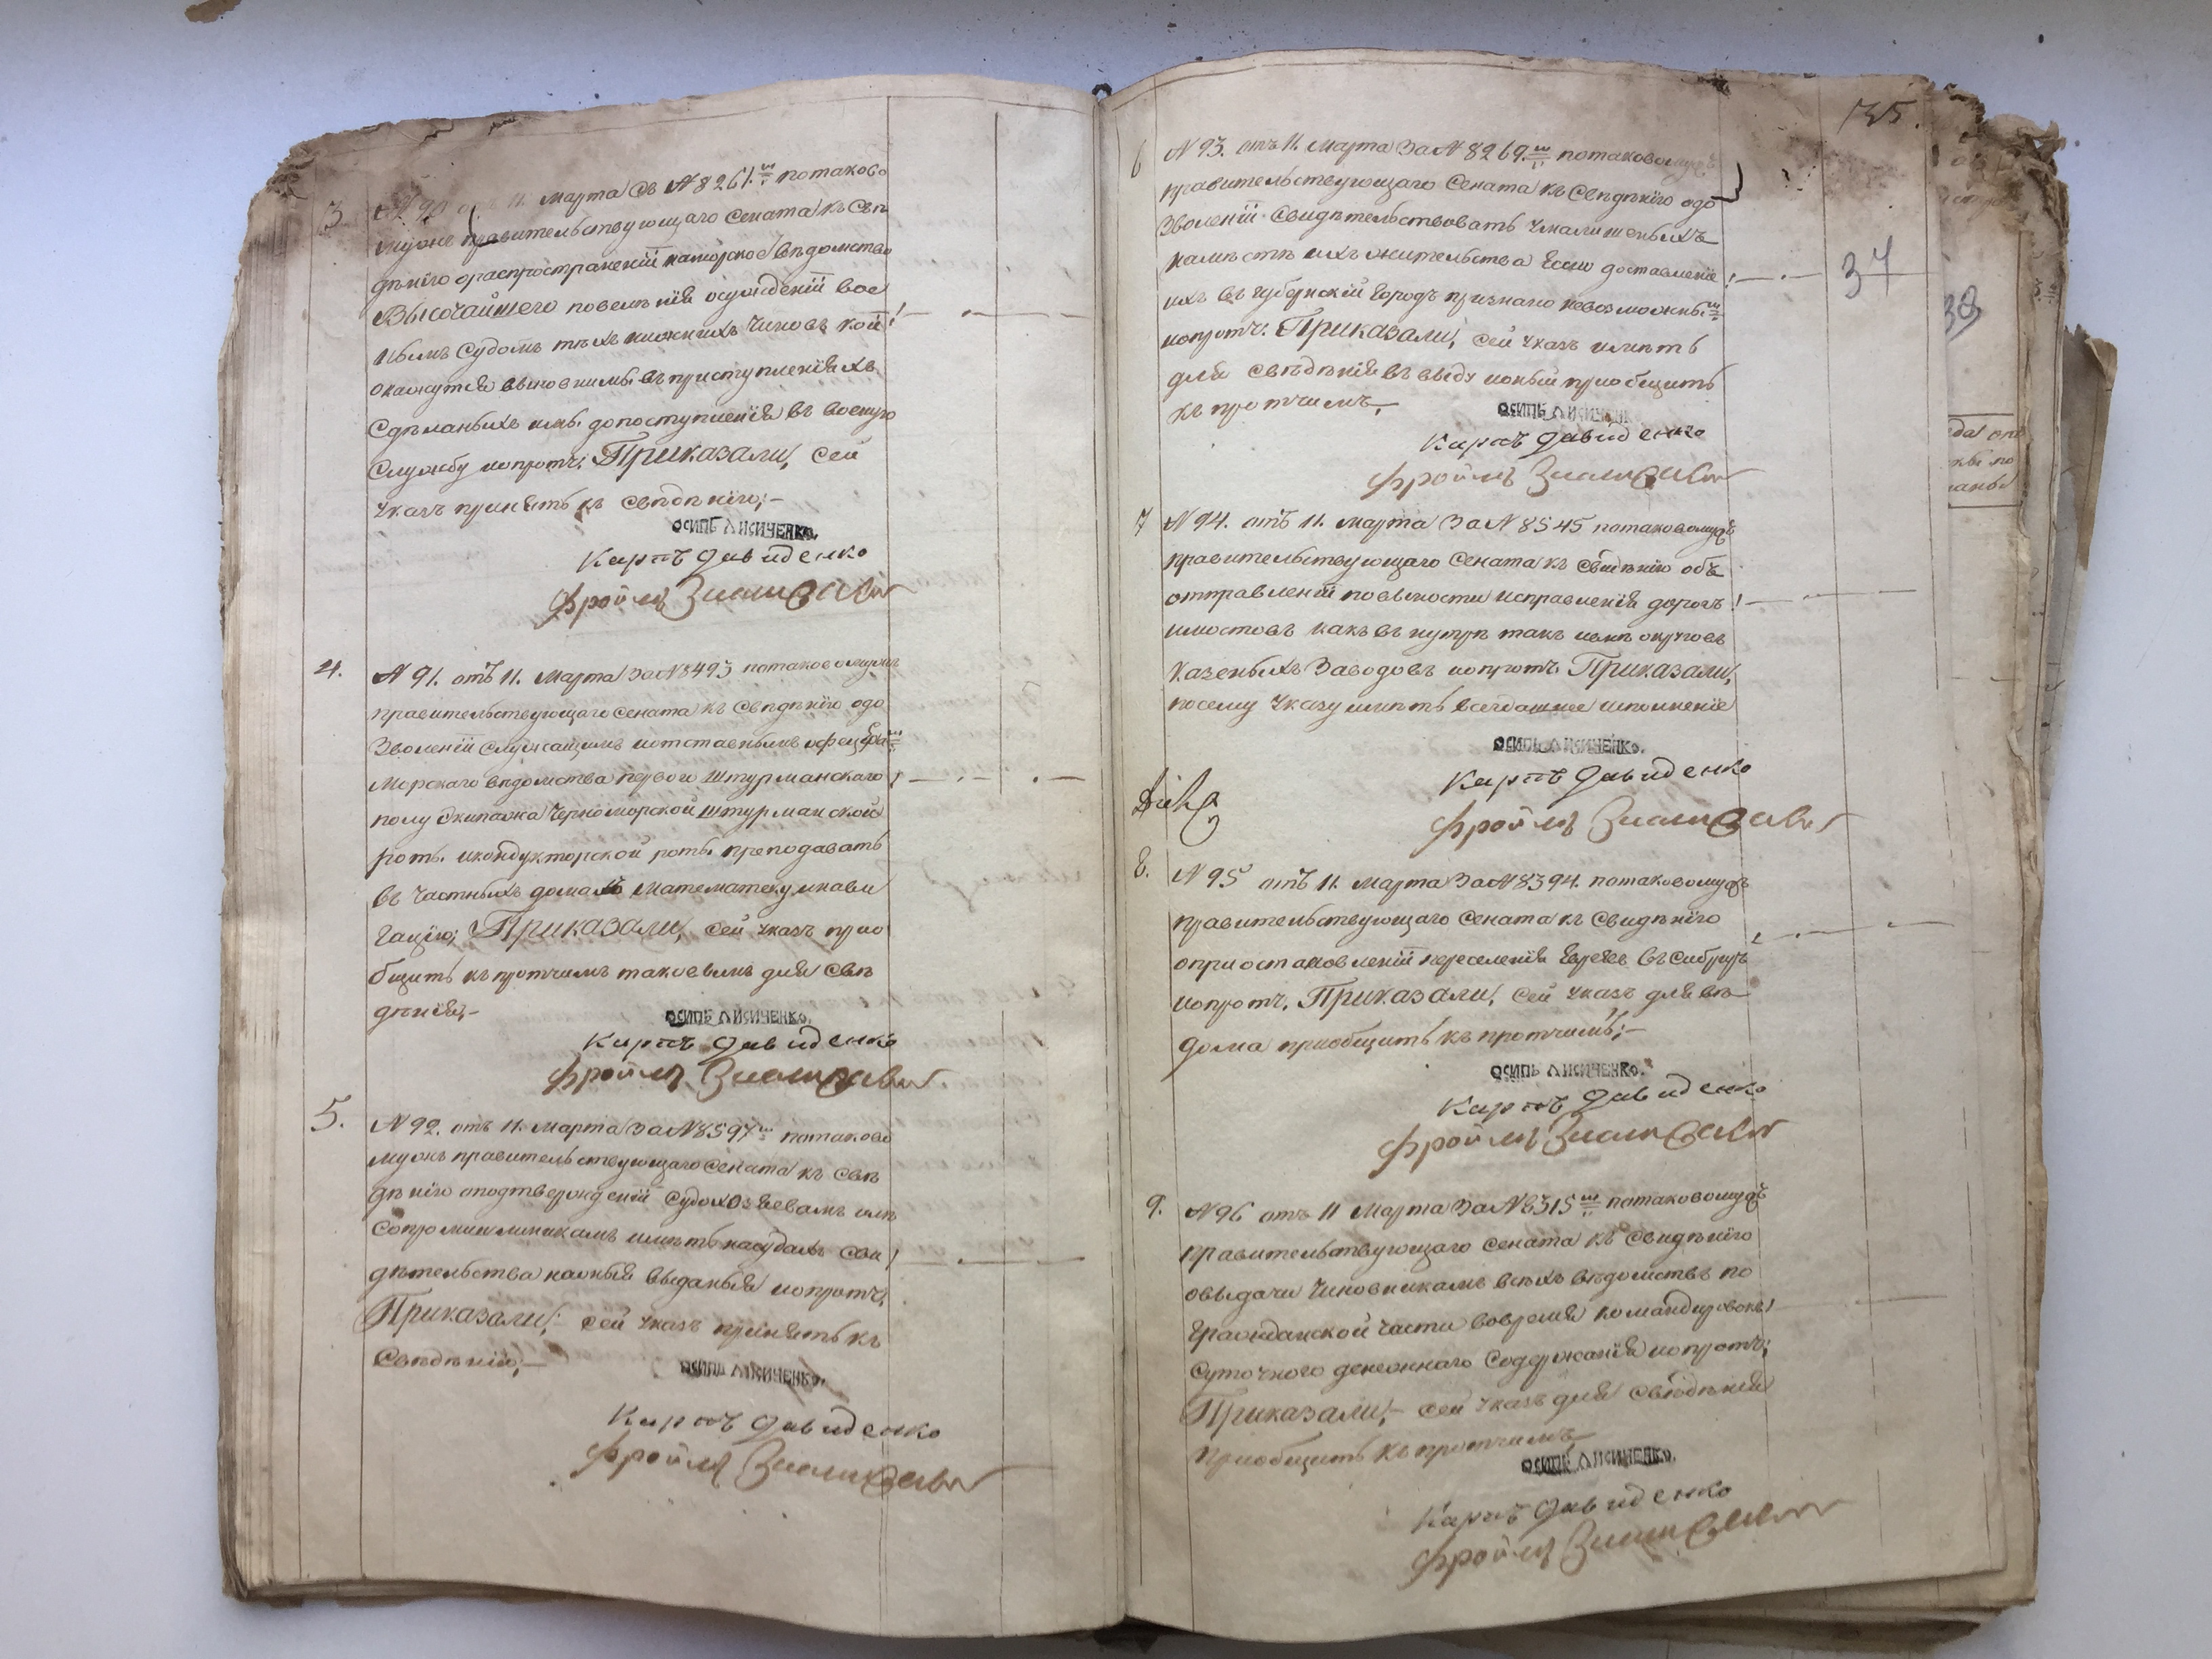 3
N 90 отъ 11. Марта съ N 8261.ш потаково
муже правительствующаго Сената къ Свѣ
дѣнію о распространеніи на морское вѣдомство
Высочайшего повелѣнія осужденіи вое
ннымъ Судомъ тѣхъ нижнихъ Чиновъ кои
окажутся виновними въ приступленіяхъ
Сдѣланыхъ ими допоступленія въ военую
Службу и опротч. Приказали, Сей
Указъ принять къ Свѣдѣнію;-
ОСИПЪ ЛИСИЧЕНКО.
Карпъ Давиденко
Фроимъ
4.
N 91. отъ 11. Марта За N 8493 потаковомуже
правительствующаго Сената къ Свѣдѣнію одо
Зволеніи Служащимъ и отставнымъ офецера
Морскаго вѣдомства первого Штурманскаго
полу Экипажа Черноморской Штурманской
роты и кондукторской роты преподавать
въ Частныхъ домахъ Математеку и нави
Гацію; Приказали, Сей Указъ прио
бщить къ протчимъ таковымъ для Свѣ
дѣнія;-
ОСИПЪ ЛИСИЧЕНКО.
Карпъ Давиденко
Фроимъ
5.
N 92. отъ 11. Марта За N 8597 ш потаково
муже правительствующаго Сената къ Свѣ
дѣнію оподтвержденіи Судохозяевамъ или
Сопромишленикамъ имѣть насудахъ Сви
дѣтельства наоныя выданыя и опротч.
Приказали;- Сей Указъ принять къ
Свѣдѣнію;-
ОСИПЪ ЛИСИЧЕНКО.
Карпъ Давиденко
Фроимъ
135.
6
N 93. отъ 11. Марта За N 8269.ш потаковомуже
правительствующаго Сената къ Свѣдѣнію одо
Зволеніи Свидѣтельствовать Умалишеныхъ
намѣстѣ ихъ жительства Если доставленіе
ихъ въ Губернскій Городъ признано невозможны
и опротч. Приказали, Сей Указъ имѣть
для Свѣдѣнія въ виду и оный приобщить
къ протчимъ,
34
ОСИПЪ ЛИСИЧЕНКО
Карпъ Давиденко
Фроимъ
7
N 94. отъ 11. Марта За N 8545 потаковомуже
правительствующаго Сената къ Свидѣнію объ
отправленіи повыности исправленія дорогъ
имостовъ какъ въ нутри такъ ивнѣ округовъ
Казеныхъ Заводовъ и опротч. Приказали,
посему Указу имѣть всегдашнее исполненіе
ОСИПЪ ЛИСИЧЕНКО.
Карпъ Давиденко
Фроимъ
8.
N 95 отъ 11. Марта За N 8394. потаковомуже
правительствующаго Сената къ Свидѣнію
оприостановленіи переселенія Евреевъ въ Сибирь
и опротч. Приказали, Сей Указъ для вѣ
дома приобщить къ протчимъ;-
ОСИПЪ ЛИСИЧЕНКО.
Карпъ Давиденко
Фроимъ
9.
N 96 отъ 11 Марта За N 8315 ш потаковомуже
правительствующаго Сената къ Свидѣнію
овыдачи Чиновникамъ всѣхъ вѣдомствъ по
Гражданской части вовремя командировокъ
Суточного денежнаго Содержанія и опротч;
Приказали;- Сей Указъ для Свѣдѣнія
Приобщить къ протчимъ,
ОСИПЪ ЛИСИЧЕНКО.
Карпъ Давиденко
Фроимъ